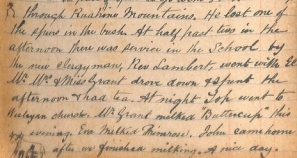 through Ruahine Mountains. He lost one of
the spurs in the bush. At half past two in the
afternoon there was service in the School by
the new clergyman, Rev Lambert, went with El
Mr Mrs & Miss Grant drove down & spent the
afternoon & had tea. At night Joh went to
Wesleyan church. Mr Grant milked Buttercup this
evening. Eva Milked Munrow. John came home
after we finished milking. A nice day.